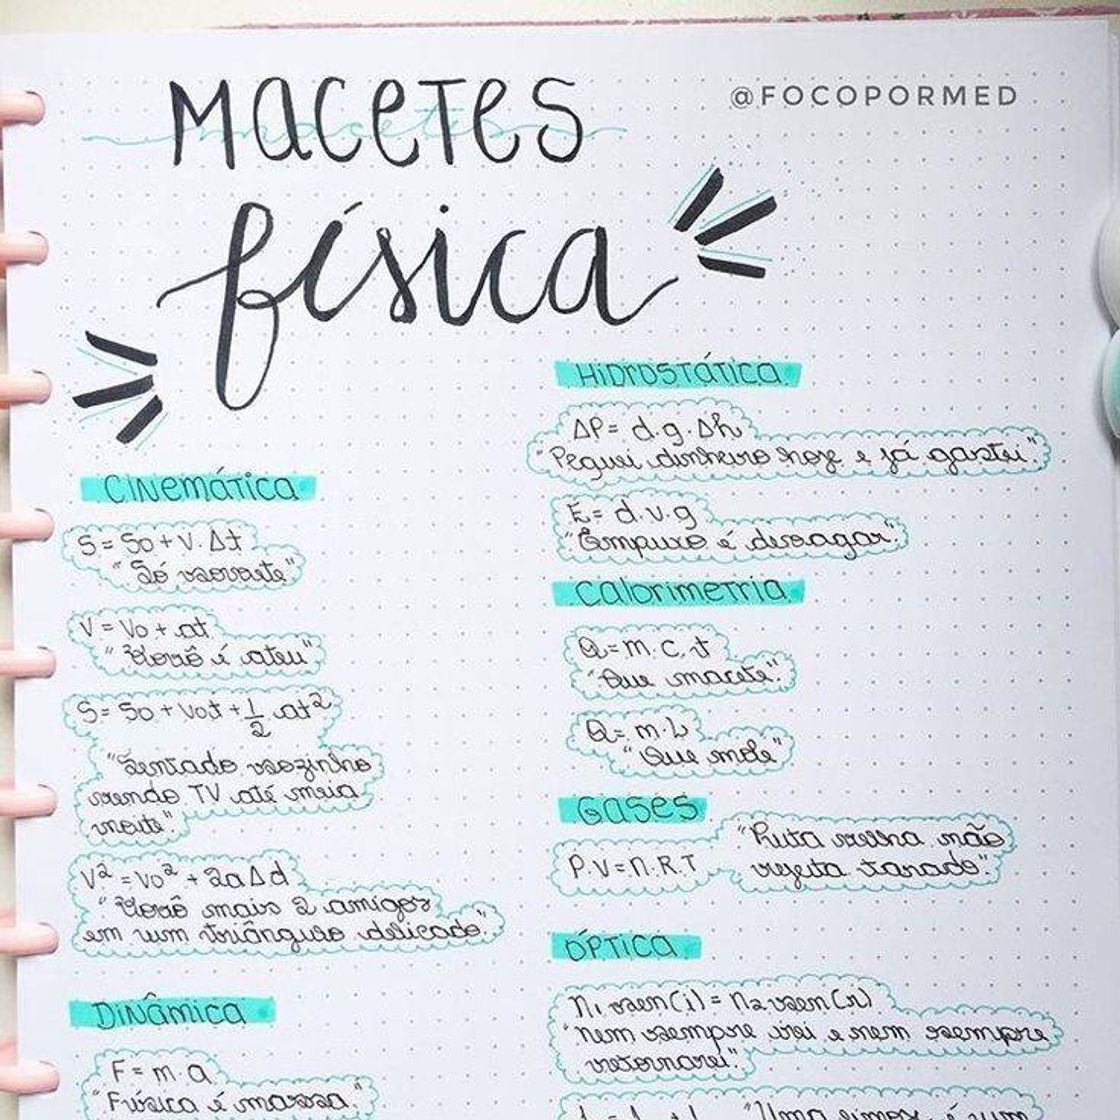 Macetes
@FOCOPORMED
física
Cinemática
S = So + V.Δt
"Só sorvete"
V = Vo + at
"Vovô é ateu"
S = So + Vot + 1/2 at²
"Sentado sozinho
vendo TV até meia
noite".
V² = Vo² + 2aΔd
"Vovô mais 2 amigos
em um triângulo delicado".
Dinâmica
F = m.a
"Física é massa."
Hidrostática
ΔP = d.g.Δh
"Peguei dinheiro hoje e já gastei".
E = d.v.g
"Empuxo é devagar".
Calorimetria
Q = m.c.t
"Que macete".
Q = m.L
"Que mole"
Gases
P.V = n.R.T
"Puta velha não
rejeita tarado".
Óptica
n₁ sen(i) = n₂ sen(r)
"nem sempre irei e nem sempre
retornarei".
"Uma
é um